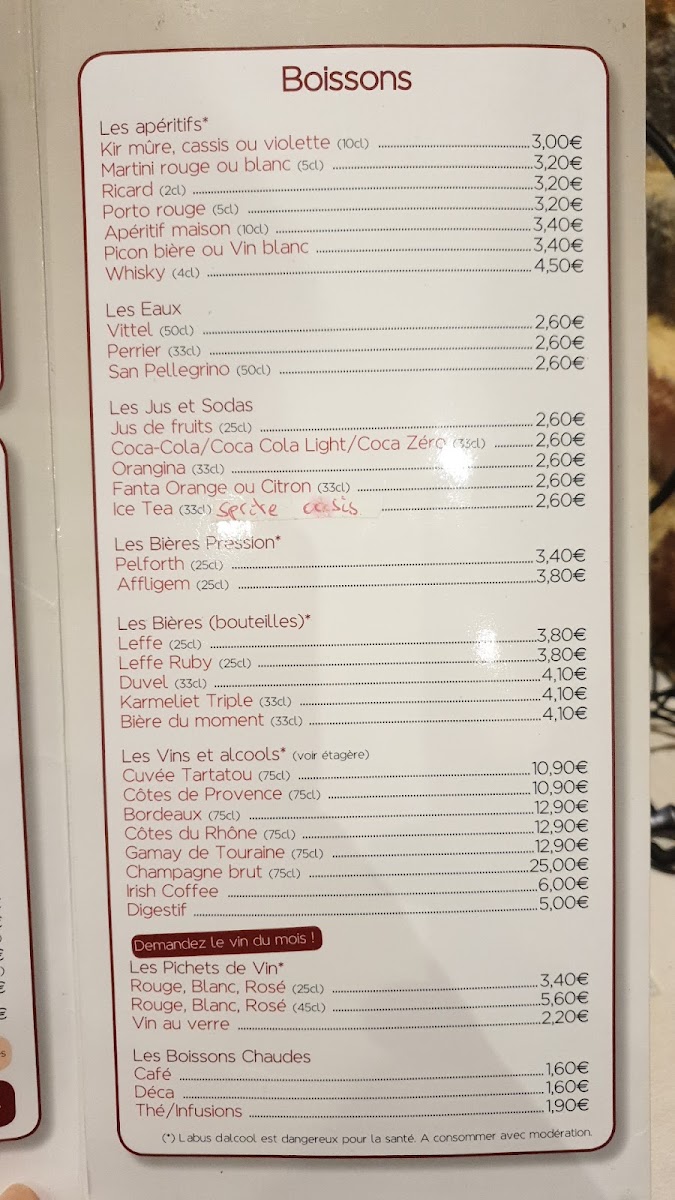 Boissons
Les apéritifs*
Kir mûre, cassis ou violette (10cl) 3,00€
Martini rouge ou blanc (5cl) 3,20€
Ricard (2cl) 3,20€
Porto rouge (5cl) 3,20€
Apéritif maison (10cl) 3,40€
Picon bière ou Vin blanc 3,40€
Whisky (4cl) 4,50€
Les Eaux
Vittel (50cl) 2,60€
Perrier (33cl) 2,60€
San Pellegrino (50cl) 2,60€
Les Jus et Sodas
Jus de fruits (25cl) 2,60€
Coca-Cola/Coca Cola Light/Coca Zéro (33cl) 2,60€
Orangina (33cl) 2,60€
Fanta Orange ou Citron (33cl) 2,60€
Ice Tea (33cl) sprite casis 2,60€
Les Bières Pression*
Pelforth (25cl) 3,40€
Affligem (25cl) 3,80€
Les Bières (bouteilles)*
Leffe (25cl) 3,80€
Leffe Ruby (25cl) 3,80€
Duvel (33cl) 4,10€
Karmeliet Triple (33cl) 4,10€
Bière du moment (33cl) 4,10€
Les Vins et alcools* (voir étagère)
Cuvée Tartatou (75cl) 10,90€
Côtes de Provence (75cl) 10,90€
Bordeaux (75cl) 12,90€
Côtes du Rhône (75cl) 12,90€
Gamay de Touraine (75cl) 12,90€
Champagne brut (75cl) 25,00€
Irish Coffee 6,00€
Digestif 5,00€
Demandez le vin du mois !
Les Pichets de Vin*
Rouge, Blanc, Rosé (25cl) 3,40€
Rouge, Blanc, Rosé (45cl) 5,60€
Vin au verre 2,20€
Les Boissons Chaudes
Café 1,60€
Déca 1,60€
Thé/Infusions 1,90€
(*) Labus dalcool est dangereux pour la santé. A consommer avec modération.